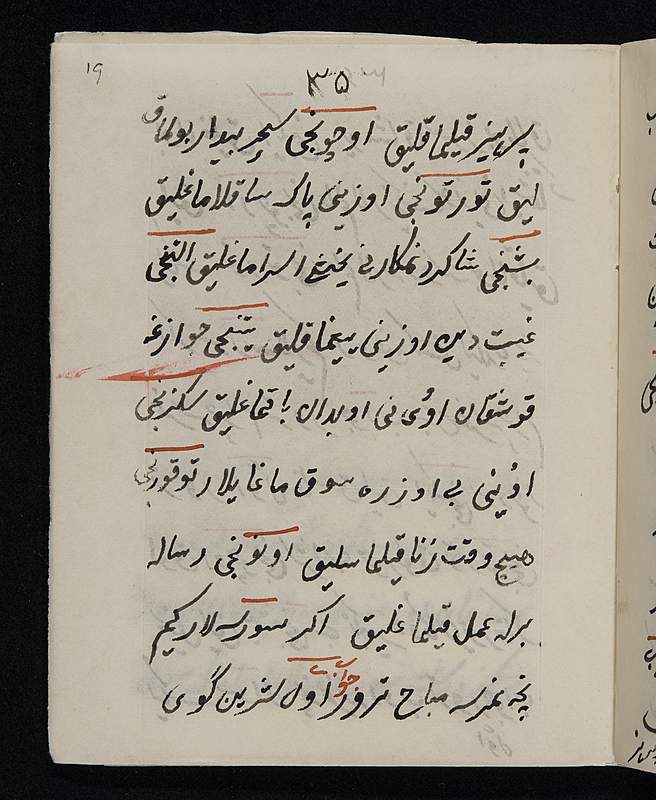 ۱۹
۳۵
پرهیز قیلماقلیق اوچونجی سحر بیدار بولماق
لیق تورتونجی اوزینی پاک ساقلاماغلیق
بشنجی شاکرد نمکارنی یخشی اسراماغلیق التنجی
غیبت دین اوزینی ییغماقلیق یتنجی جوازغه
قوشقان اوُی نی اوبدان باقماغلیق سکزنجی
اوُینی بی اوزره سوق ماغایلار توقوزنجی
هیچ وقت زنا قیلماسلیق اونونجی رساله
برله عمل قیلماغلیق اکر سورسه لار کیم
نچه نمرسه مباح تورور جواب اول شرین کوی